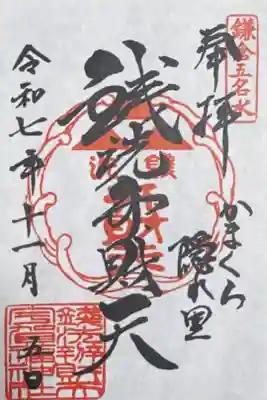 鎌倉五名水
奉拝
かまくら
隠れ里
銭洗弁財天
令和七年十一月
五日